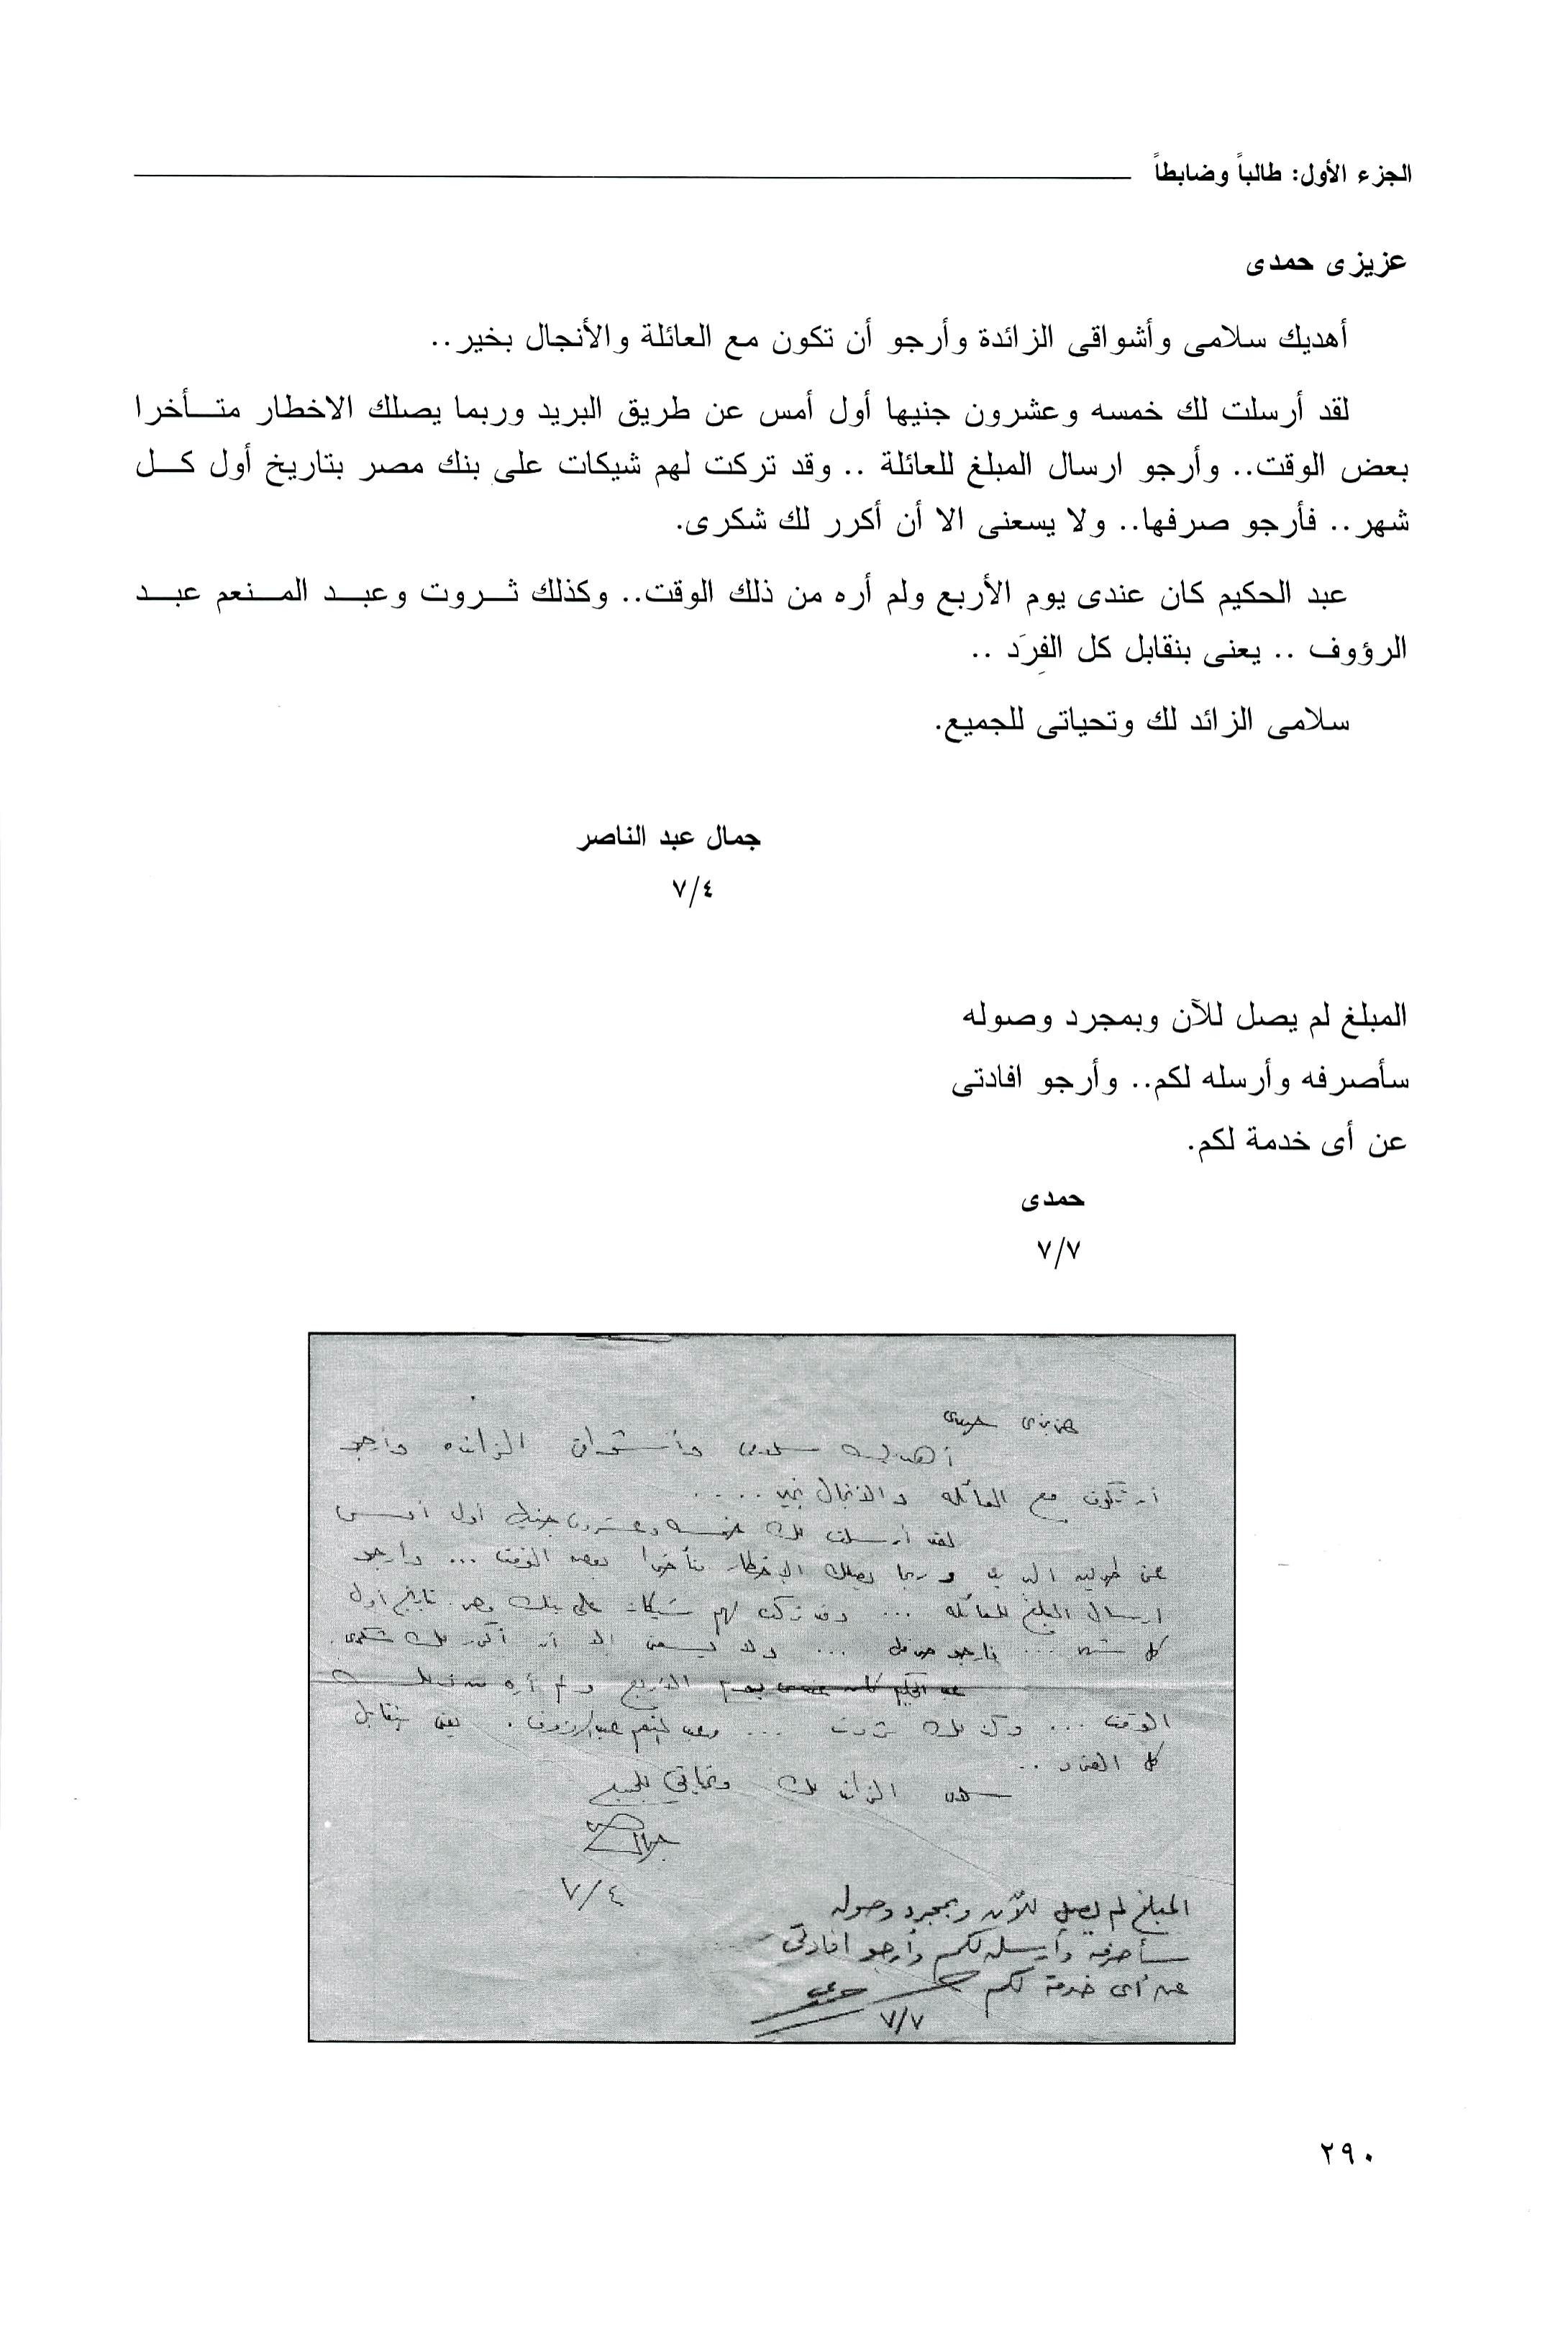 الجزء الأول: طالباً وضابطاً
عزيزى حمدى
أهديك سلامى وأشواقى الزائدة وأرجو أن تكون مع العائلة والأنجال بخير..
لقد أرسلت لك خمسه وعشرون جنيها أول أمس عن طريق البريد وربما يصلك الاخطار متأخرا
بعض الوقت.. وأرجو ارسال المبلغ للعائلة .. وقد تركت لهم شيكات على بنك مصر بتاريخ أول كل
شهر.. فأرجو صرفها.. ولا يسعنى الا أن أكرر لك شكرى.
عبد الحكيم كان عندى يوم الأربع ولم أره من ذلك الوقت.. وكذلك ثروت وعبد المنعم عبد
الرؤوف .. يعنى بنقابل كل الفِرَد ..
سلامى الزائد لك وتحياتى للجميع.
جمال عبد الناصر
٧/٤
المبلغ لم يصل للآن وبمجرد وصوله
سأصرفه وأرسله لكم.. وأرجو افادتى
عن أى خدمة لكم.
حمدى
٧/٧
عزيزى حمدى
أهديك سلامى وأشواقى الزائده وأرجو
أن تكون مع العائله والانجال بخير ....
لقد أرسلت لك خمسه وعشرون جنيها أول أمس
عن طريق البريد وربما يصلك الاخطار متأخرا بعض الوقت ... وأرجو
ارسال المبلغ للعائله ... وقد تركت لهم شيكات على بنك مصر بتاريخ أول
كل شهر ... فأرجو صرفها ... ولا يسعنى الا أن أكرر لك شكرى.
عبد الحكيم كان عندى يوم الاربع ولم أره من ذلك
الوقت ... وكذلك ثروت ... وعبد المنعم عبد الرؤوف . يعنى بنقابل
كل الفرد ..
سلامى الزائد لك وتحياتى للجميع
جمال
٧/٤
المبلغ لم يصل للآن وبمجرد وصوله
سأصرفه وأرسله لكم وأرجو افادتى
عن أى خدمة لكم
حمدى
٧/٧
٢٩٠